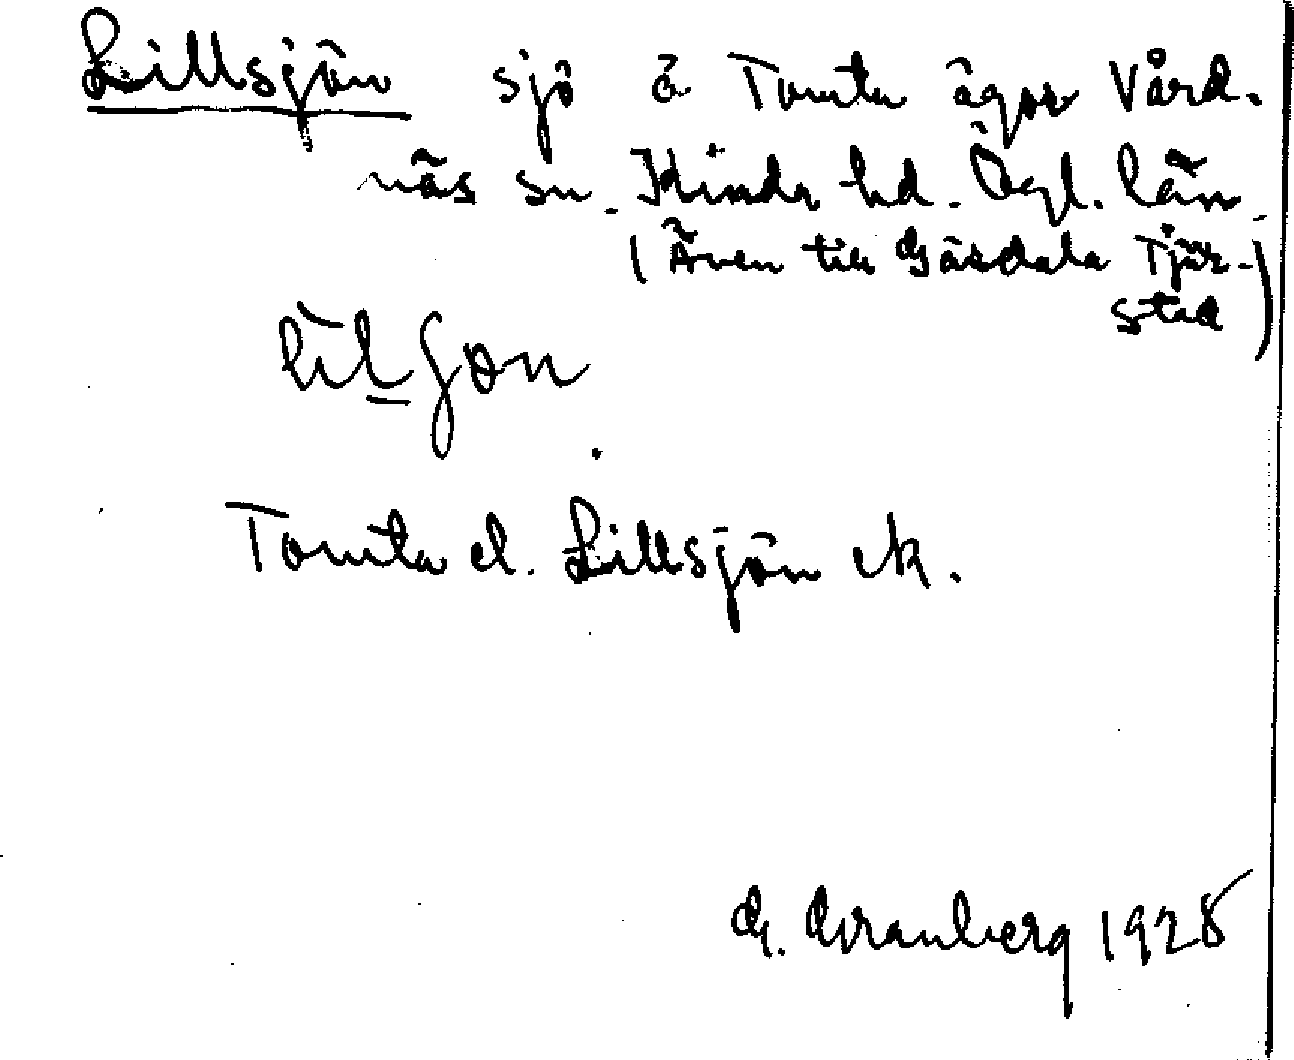 Lillsjön sjö å Tomta ägor Vård-
näs sn. Kinds hd. Ögl. län.
(Även till Gåsdala Tjär-
stad)
Tomta el. Lillsjön ek.
G. Granberg 1928